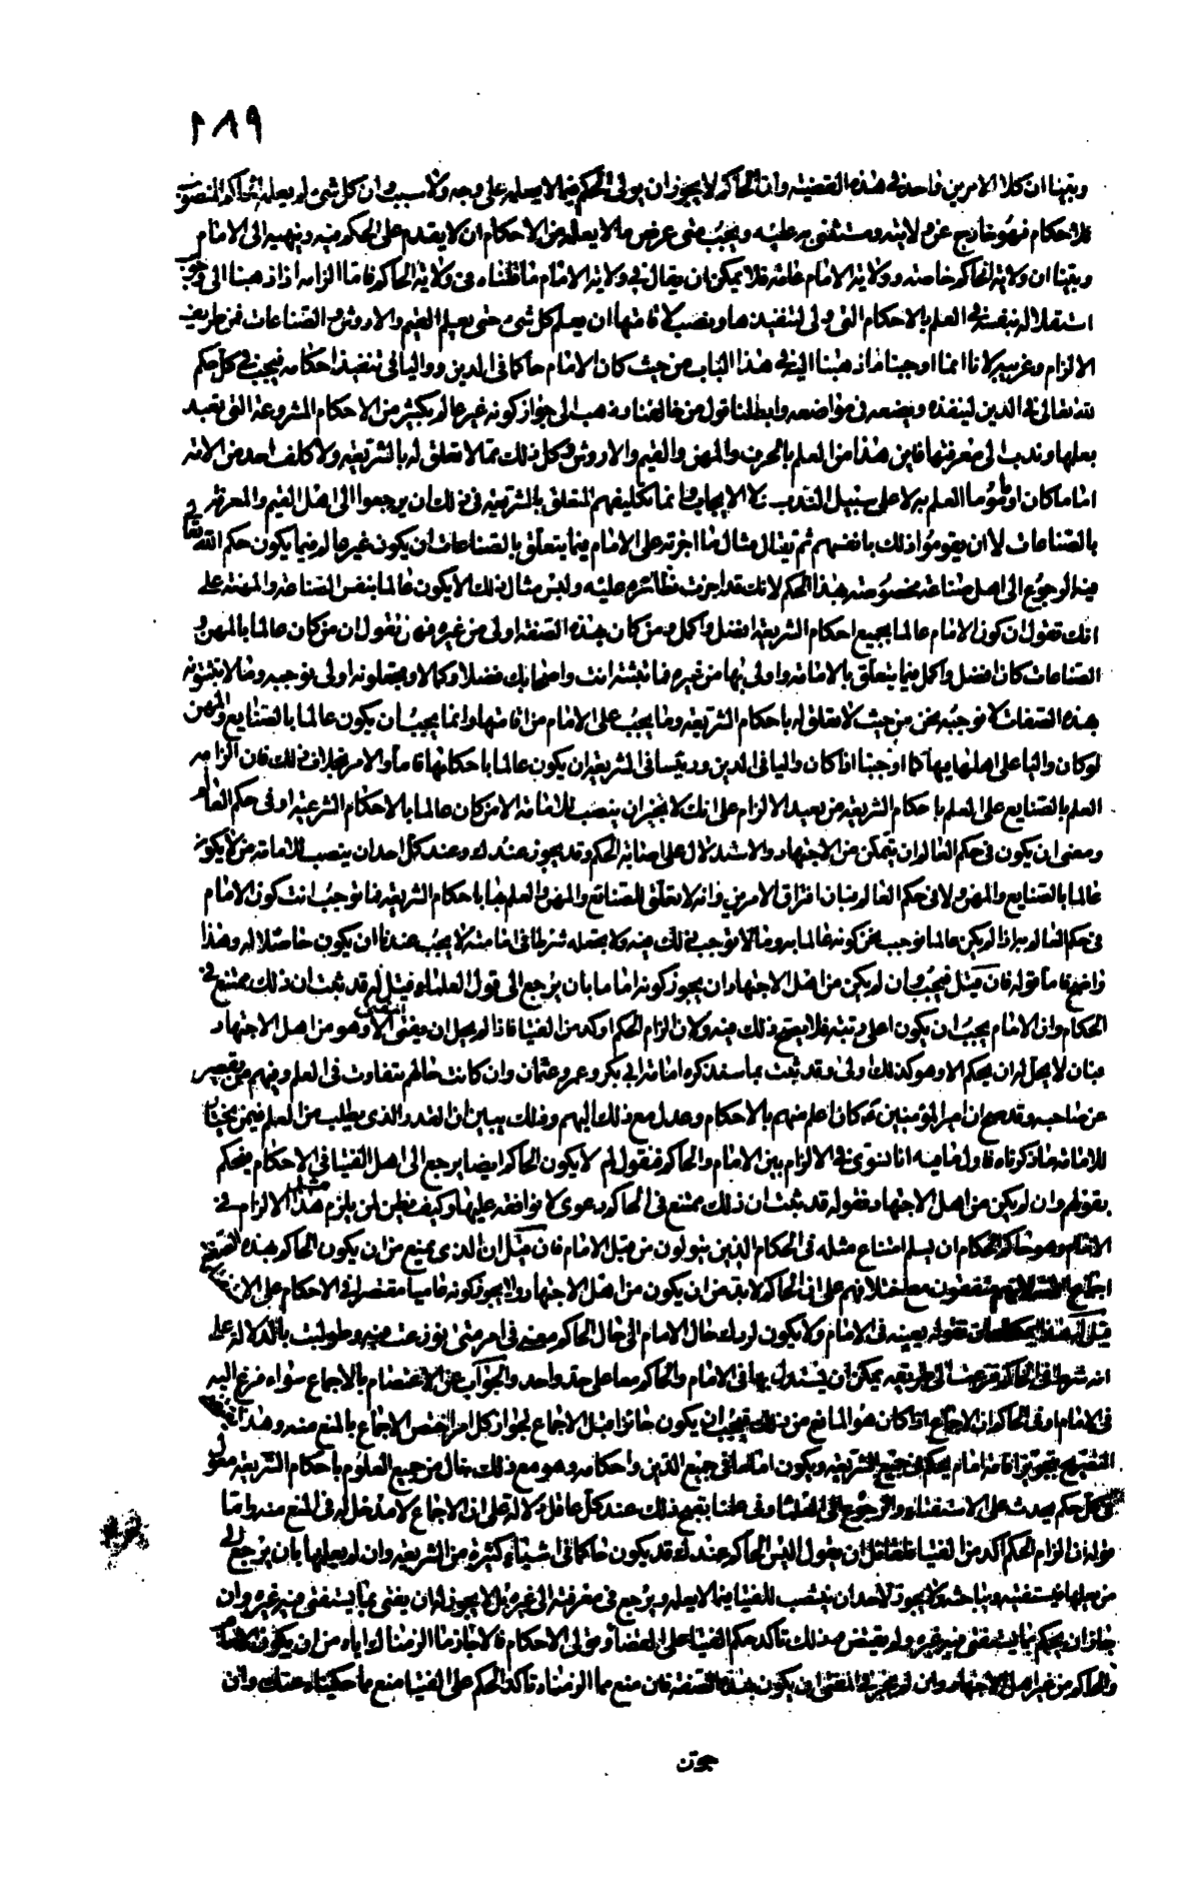 ١٨٩
وبينا ان كلا الامرين واحد في هذه القضية وان الحاكم لا يجوز ان يولى الحكم فيما لا يعلمه على وجه ولا سبب وان كل شيء لم يعلمه الحاكم المنصوب
للاحكام فهو خارج عن ولايته ومستثنى به عليه ويجب متى عرض ما لا يعلمه من الاحكام ان لا يقدم على الحكم فيه وينهيه الى الامام
وبينا ان ولاية الحاكم خاصة وولاية الامام عامة فلا يمكن ان يقال في ولاية الامام ما قلناه في ولاية الحاكم فاما الزامه اذا ذهبنا الى وجوب
استقلاله بنفسه في العلم بالاحكام التي ولى لتنفيذها ونصب لاقامتها ان يعلم كل شيء حتى يعلم القيم والاروش والصناعات فمن طريف
الالزام وغريبه لانا انما اوجبنا ما ذهبنا اليه في هذا الباب من حيث كان الامام حاكما في الدين وواليا في تنفيذ احكامه فيجب في كل حكم
لله تعالى في الدين لينفذه ويضعه في مواضعه وابطلنا قول من خالفنا وذهب الى جواز كونه غير عالم بكثير من الاحكام المشروعة التي تعبد
بعلمها وندب الى معرفتها فاين هذا من العلم بالحرف والمهن والقيم والاروش وكل ذلك مما لا تعلق له بالشريعة ولا كلف احد من الامة
اماما كان او مأموما العلم به لا على سبيل الندب ولا الايجاب وانما تكليفهم المتعلق بالشريعة في ذلك ان يرجعوا الى اهل القيم والمعرفة
بالصناعات لا ان يقوموا ذلك بانفسهم ثم يقال مثال ما اجزته على الامام فيما يتعلق بالصناعات ان يكون غير عالم فيما يكون حكم الله تعالى
فيه الرجوع الى اهل صناعة مخصوصة بهذا الحكم لانك قد اجزت نظائره عليه وليس مثال ذلك الا يكون عالما بنفس الصناعة والمهنة على
انك تقول ان كون الامام عالما بجميع احكام الشريعة افضل واكمل ومن كان بهذه الصفة اولى من غيره فهل تقول ان من كان عالما بالمهن و
الصناعات كان افضل واكمل فيما يتعلق بالامامة واولى بها من غيره فما تثبته انت واصحابك فضلا وكمالا وتجعلونه اولى نوجبه وما لا تثبتونه
بهذه الصفات لا نوجبه نحن من حيث لا تعلق له باحكام الشريعة وما يجب على الامام من اقامتها وانما يجب ان يكون عالما بالصنايع والمهن
لو كان واليا على اهلها بها كما اوجبنا اذا كان واليا في الدين ورئيسا في الشريعة ان يكون عالما باحكامها فاما والامر بخلاف ذلك فان الزامه
العلم بالصنايع على العلم باحكام الشريعة من بعيد الالزام على انك لا تجيز ان ينصب للامامة الا من كان عالما بالاحكام الشرعية او في حكم العالم
ومعنى ان يكون في حكم العالم ان يتمكن من الاجتهاد والاستدلال على اصابة الحكم وقد يجوز عندك وعند كل احد ان ينصب للامامة من لا يكون
عالما بالصنايع والمهن ولا في حكم العالم فبان افتراق الامرين وانه لا تعلق للصنائع والمهن والعلم بها باحكام الشريعة فما توجب انت كون الامام
في حكم العالم به اذا لم يكن عالما نوجب نحن كونه عالما به وما لا توجب ذلك فيه ولا تجعله شرطا في امامته لا يجب عندنا ان يكون حاصلا له وهذا
واضح فاما قوله فان قيل فيجب وان لم يكن من اهل الاجتهاد ان يجوز كونه اماما بان يرجع الى قول العلماء قيل له قد ثبت ان ذلك ممتنع في
الحكام وان الامام يجب ان يكون اعلى رتبة فلا يصح ذلك فيه ولان الزام الحكم اوكد من الفتيا فاذا لم يحل ان يفتي المفتي الا وهو من اهل الاجتهاد
فبان لا يحل له ان يحكم الا وهو كذلك اولى وقد ثبت بما سنذكره امامة ابي بكر وعمر وعثمان وان كانت حالهم تتفاوت في العلم وفيهم من يقصر
عن صاحبه وقد صح ان امير المؤمنين ع كان اعلم منهم بالاحكام وعدل مع ذلك اليهم وذلك يبين ان القدر الذي يطلب من العلم فيمن يختار
للامامة ما ذكرناه فاول ما فيه انا نسوي في الالزام بين الامام والحاكم فنقول لم لا يكون الحاكم ايضا يرجع الى اهل الفتيا في الاحكام فيحكم
بقولهم وان لم يكن من اهل الاجتهاد فقوله قد ثبت ان ذلك ممتنع في الحاكم دعوى لا نوافقه عليها وكيف يظن لمن يلزم مثل هذا الالزام في
الامام وهو حاكم الحكام ان يسلم امتناع مثله في الحكام الذين يتولون من قبل الامام فان قيل ان الذي يمنع من ان يكون الحاكم بهذه الصفة
اجماع متفقون مع اختلافهم على ان الحاكم لابد من ان يكون من اهل الاجتهاد ولا يجوز كونه عاميا مقتصرا في الاحكام على الاستفتاء
قيل له هذا نقوله بعينه في الامام ولا يكون لردك حال الامام الى حال الحاكم معنى في امر متى نوزعت فيه وطولبت بالدلالة على
انه شرط في الحاكم فزعت الى طريقة يمكن ان يستدل بها في الامام والحاكم معا على حد واحد والجواب عن الاعتصام بالاجماع سواء فزع اليه
في الامام او في الحاكم ان الاجماع اذا كان هو المانع من ذلك فيجب ان يكون جائزا قبل الاجماع لجواز كل امر اختص الاجماع بالمنع منه وهذا
تجويز اقامة امام يحكم في جميع الشريعة ويكون اماما في جميع الدين واحكامه وهو مع ذلك خال من جميع العلوم باحكام الشريعة معول
في كل حكم يحدث على الاستفتاء والرجوع الى العلماء وفي علمنا بقبح ذلك عند كل عاقل دلالة على ان الاجماع لا مدخل له في المنع منه واما
قوله ان الزام الحكم آكد من الفتيا فلقائل ان يقول اليس الحاكم عندك قد يكون حاكما في اشياء كثيرة من الشريعة وان لم يعلمها بان يرجع الى
من يعلمها فيستفتيه ويباحثه ولا يجوز لاحد ان ينتصب للفتيا فيما لا يعلمه ويرجع في معرفته الى غيره بل لا يجوز له ان يفتي بما يستفتي فيه غيره وان
جاز ان يحكم بما يستفتي فيه غيره ولم يقتض ذلك تأكد حكم الفتيا على القضاء وتولى الاحكام فالا جاز ما الزمناك اياه من ان يكون الامام
والحاكم من غير اهل الاجتهاد وان لم يجز في المفتي ان يكون بهذه الصفة فان منع مما الزمناه تأكد الحكم على الفتيا منع ما حكيناه عنك وان
جوزت